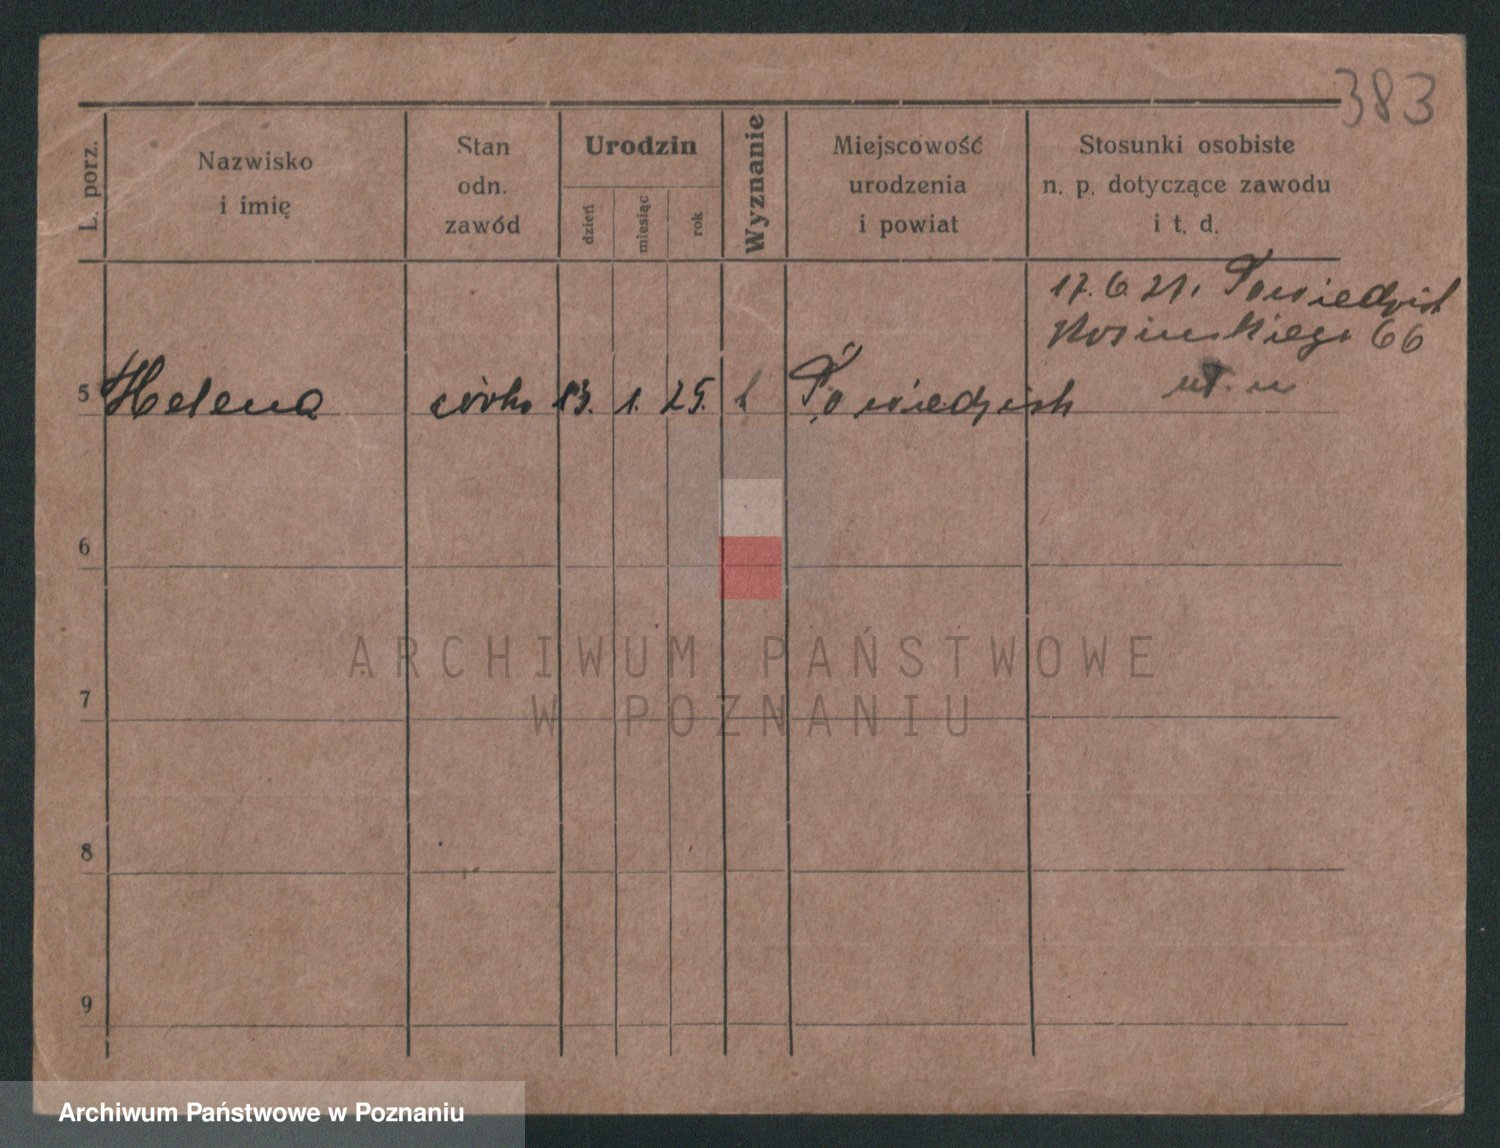 383
L. porz.
Nazwisko
i imię
Stan
odn.
zawód
Urodzin
dzień
miesiąc
rok
Wyznanie
Miejscowość
urodzenia
i powiat
Stosunki osobiste
n. p. dotyczące zawodu
i t. d.
17.6.
66
5 Helena córka 13. 1. 25.
6
7
8
9
ARCHIWUM PAŃSTWOWE
W POZNANIU
Archiwum Państwowe w Poznaniu